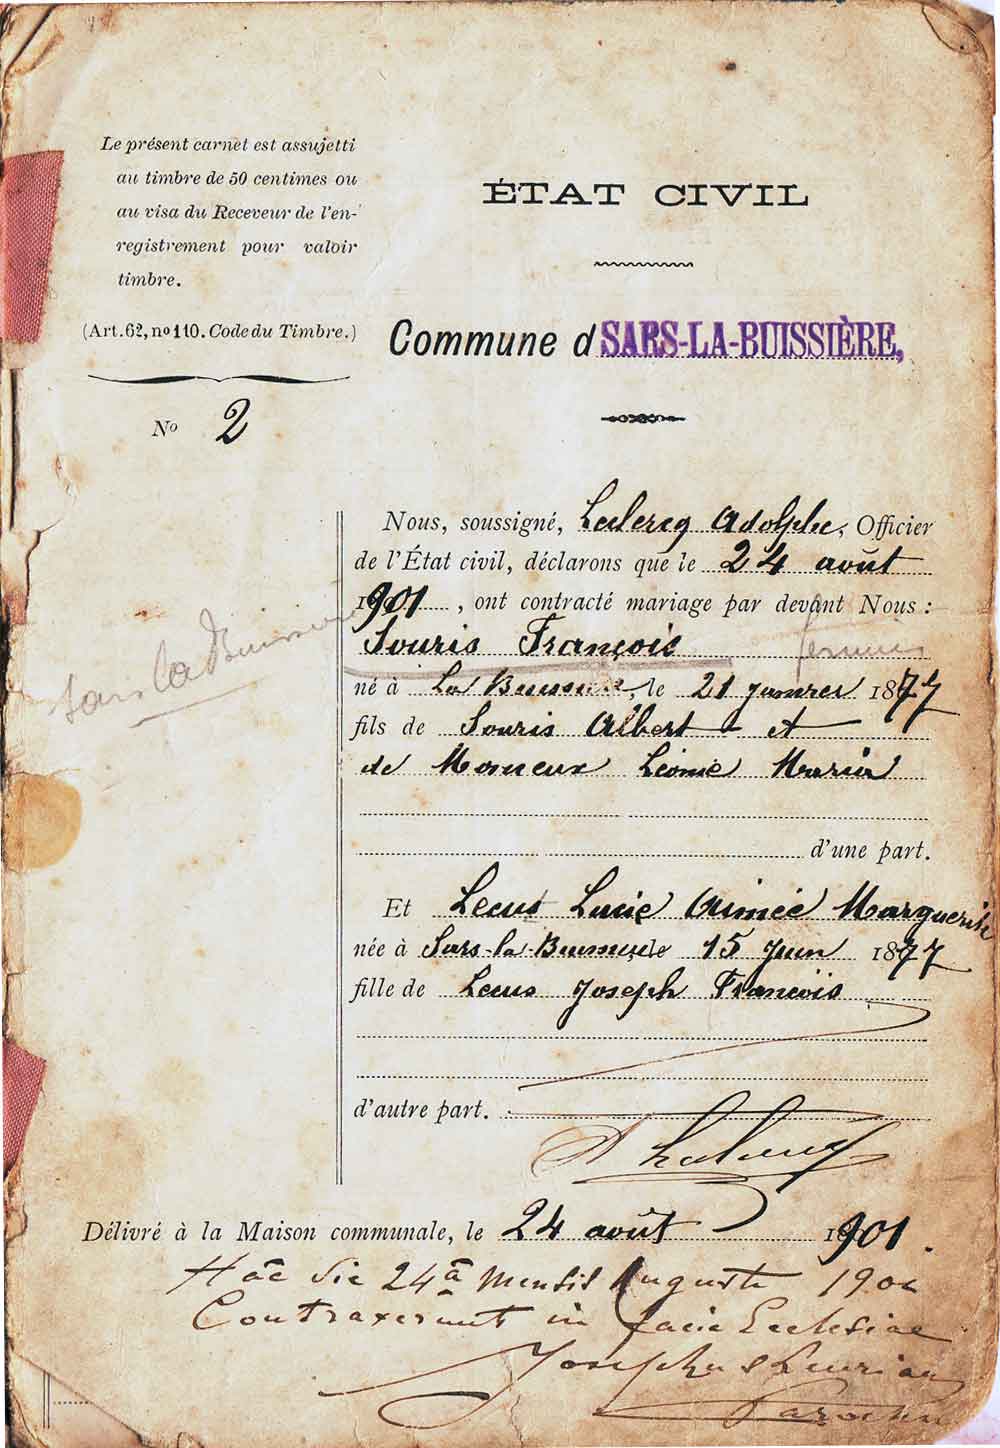 Le présent carnet est assujetti
au timbre de 50 centimes ou
au visa du Receveur de l'en-
registrement pour valoir
timbre.
(Art. 62, nº 110. Code du Timbre.)
Nº 2
ÉTAT CIVIL
Commune d SARS-LA-BUISSIÈRE,
Nous, soussigné, Leclercq Adolphe, Officier
de l'État civil, déclarons que le 24 août
1901, ont contracté mariage par devant Nous :
Souris François
Sars la Buissière
né à La Buissière, le 21 janvier 1877
fils de Souris Albert et
de Léonie Maria
d'une part.
Et Lecus Lucie Aimée Marguerite
née à Sars-la-Buissière le 15 juin 1877
fille de Lecus Joseph François
d'autre part.
Délivré à la Maison communale, le 24 août 1901.
Hâc die 24â Mensis Augusti 190
Contraxerunt in facie Ecclesiae
Josephus